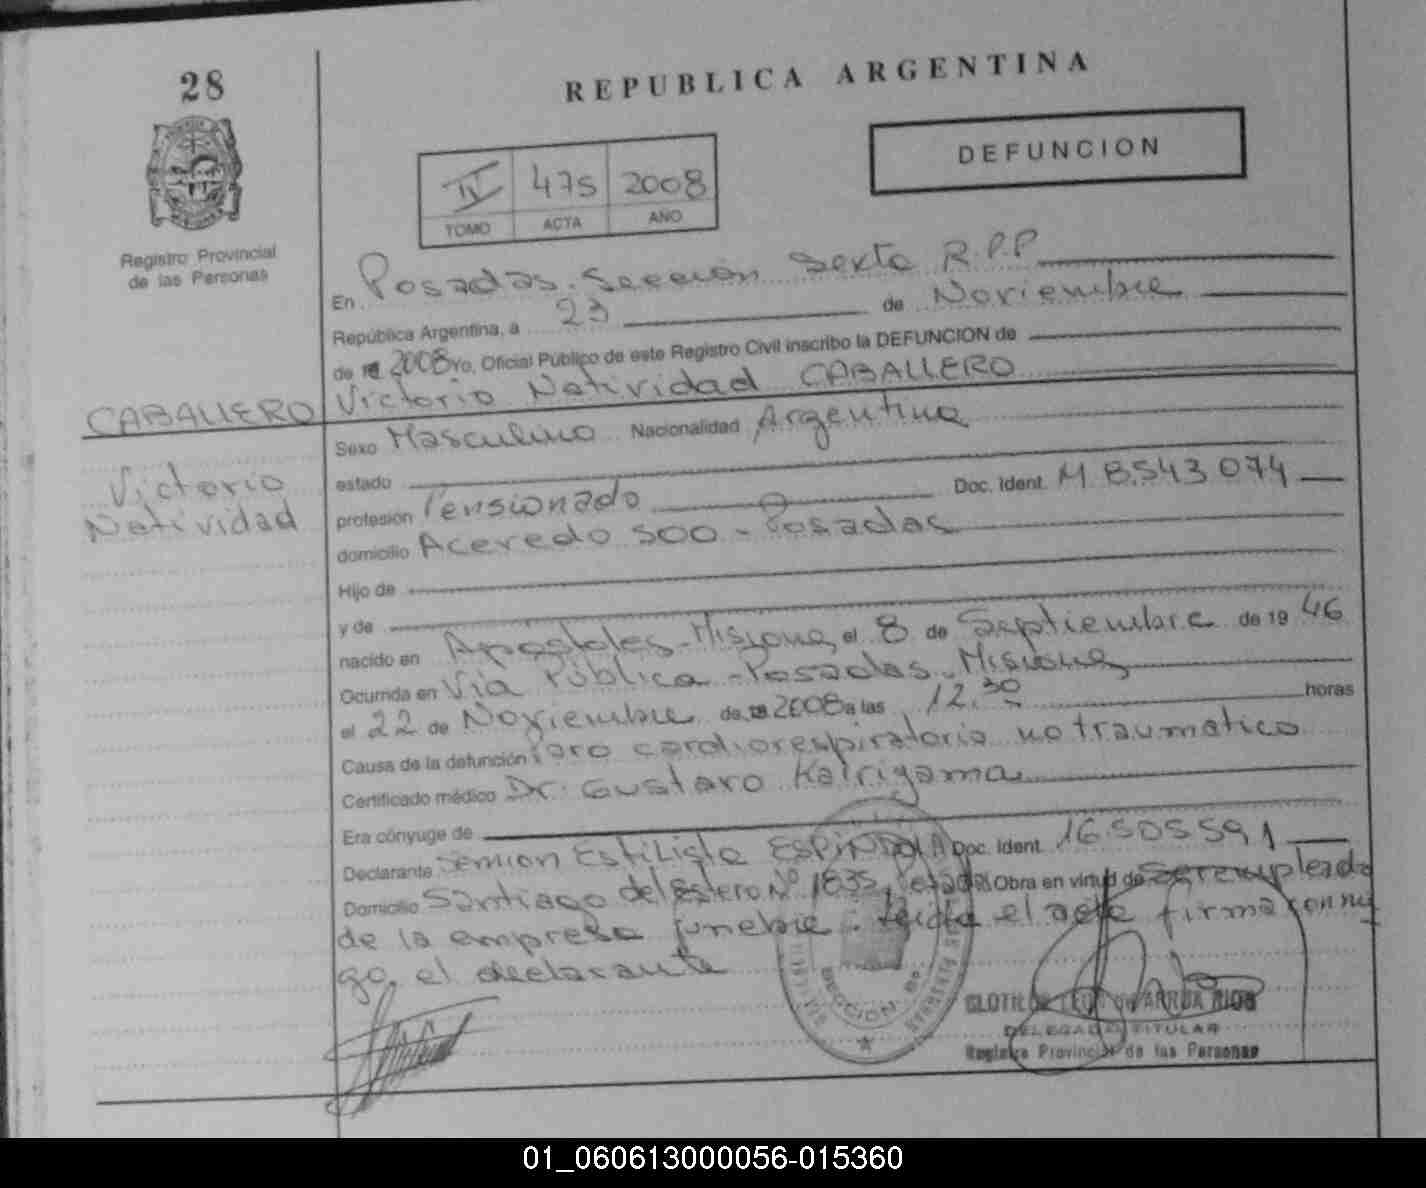 28
REPUBLICA ARGENTINA
DEFUNCION
IV 475 2008
TOMO ACTA AÑO
Registro Provincial
de las Personas
En Posadas. Sección Sexta R.P.P
República Argentina, a 23 de Noviembre
de 2008 Yo, Oficial Público de este Registro Civil inscribo la DEFUNCION de
CABALLERO Victorio Natividad CABALLERO
Sexo Masculino Nacionalidad Argentina
Victorio
Natividad
estado
profesión Pensionado Doc. Ident. M 8.543.074
domicilio Acevedo 500 - Posadas
Hijo de
y de
nacido en Apostoles - Misiones el 8 de Septiembre de 19 46
Ocurrida en Vía Pública - Posadas - Misiones
el 22 de Noviembre de 2008 a las 12.30 horas
Causa de la defunción Paro cardiorespiratorio no traumatico
Certificado médico Dr. Gustavo
Era cónyuge de
Declarante Estilista ESPINDOLA Doc. Ident. 16.505.591
Domicilio Santiago del Estero Nº 1835, Obra en virtud de ser empleado
de la empresa funebre. el acta firma conmi
go, el declarante
SECCION 6º
CLOTILDE de ARRUA RIOS
DELEGADO TITULAR
Registro Provincial de las Personas
01_060613000056-015360